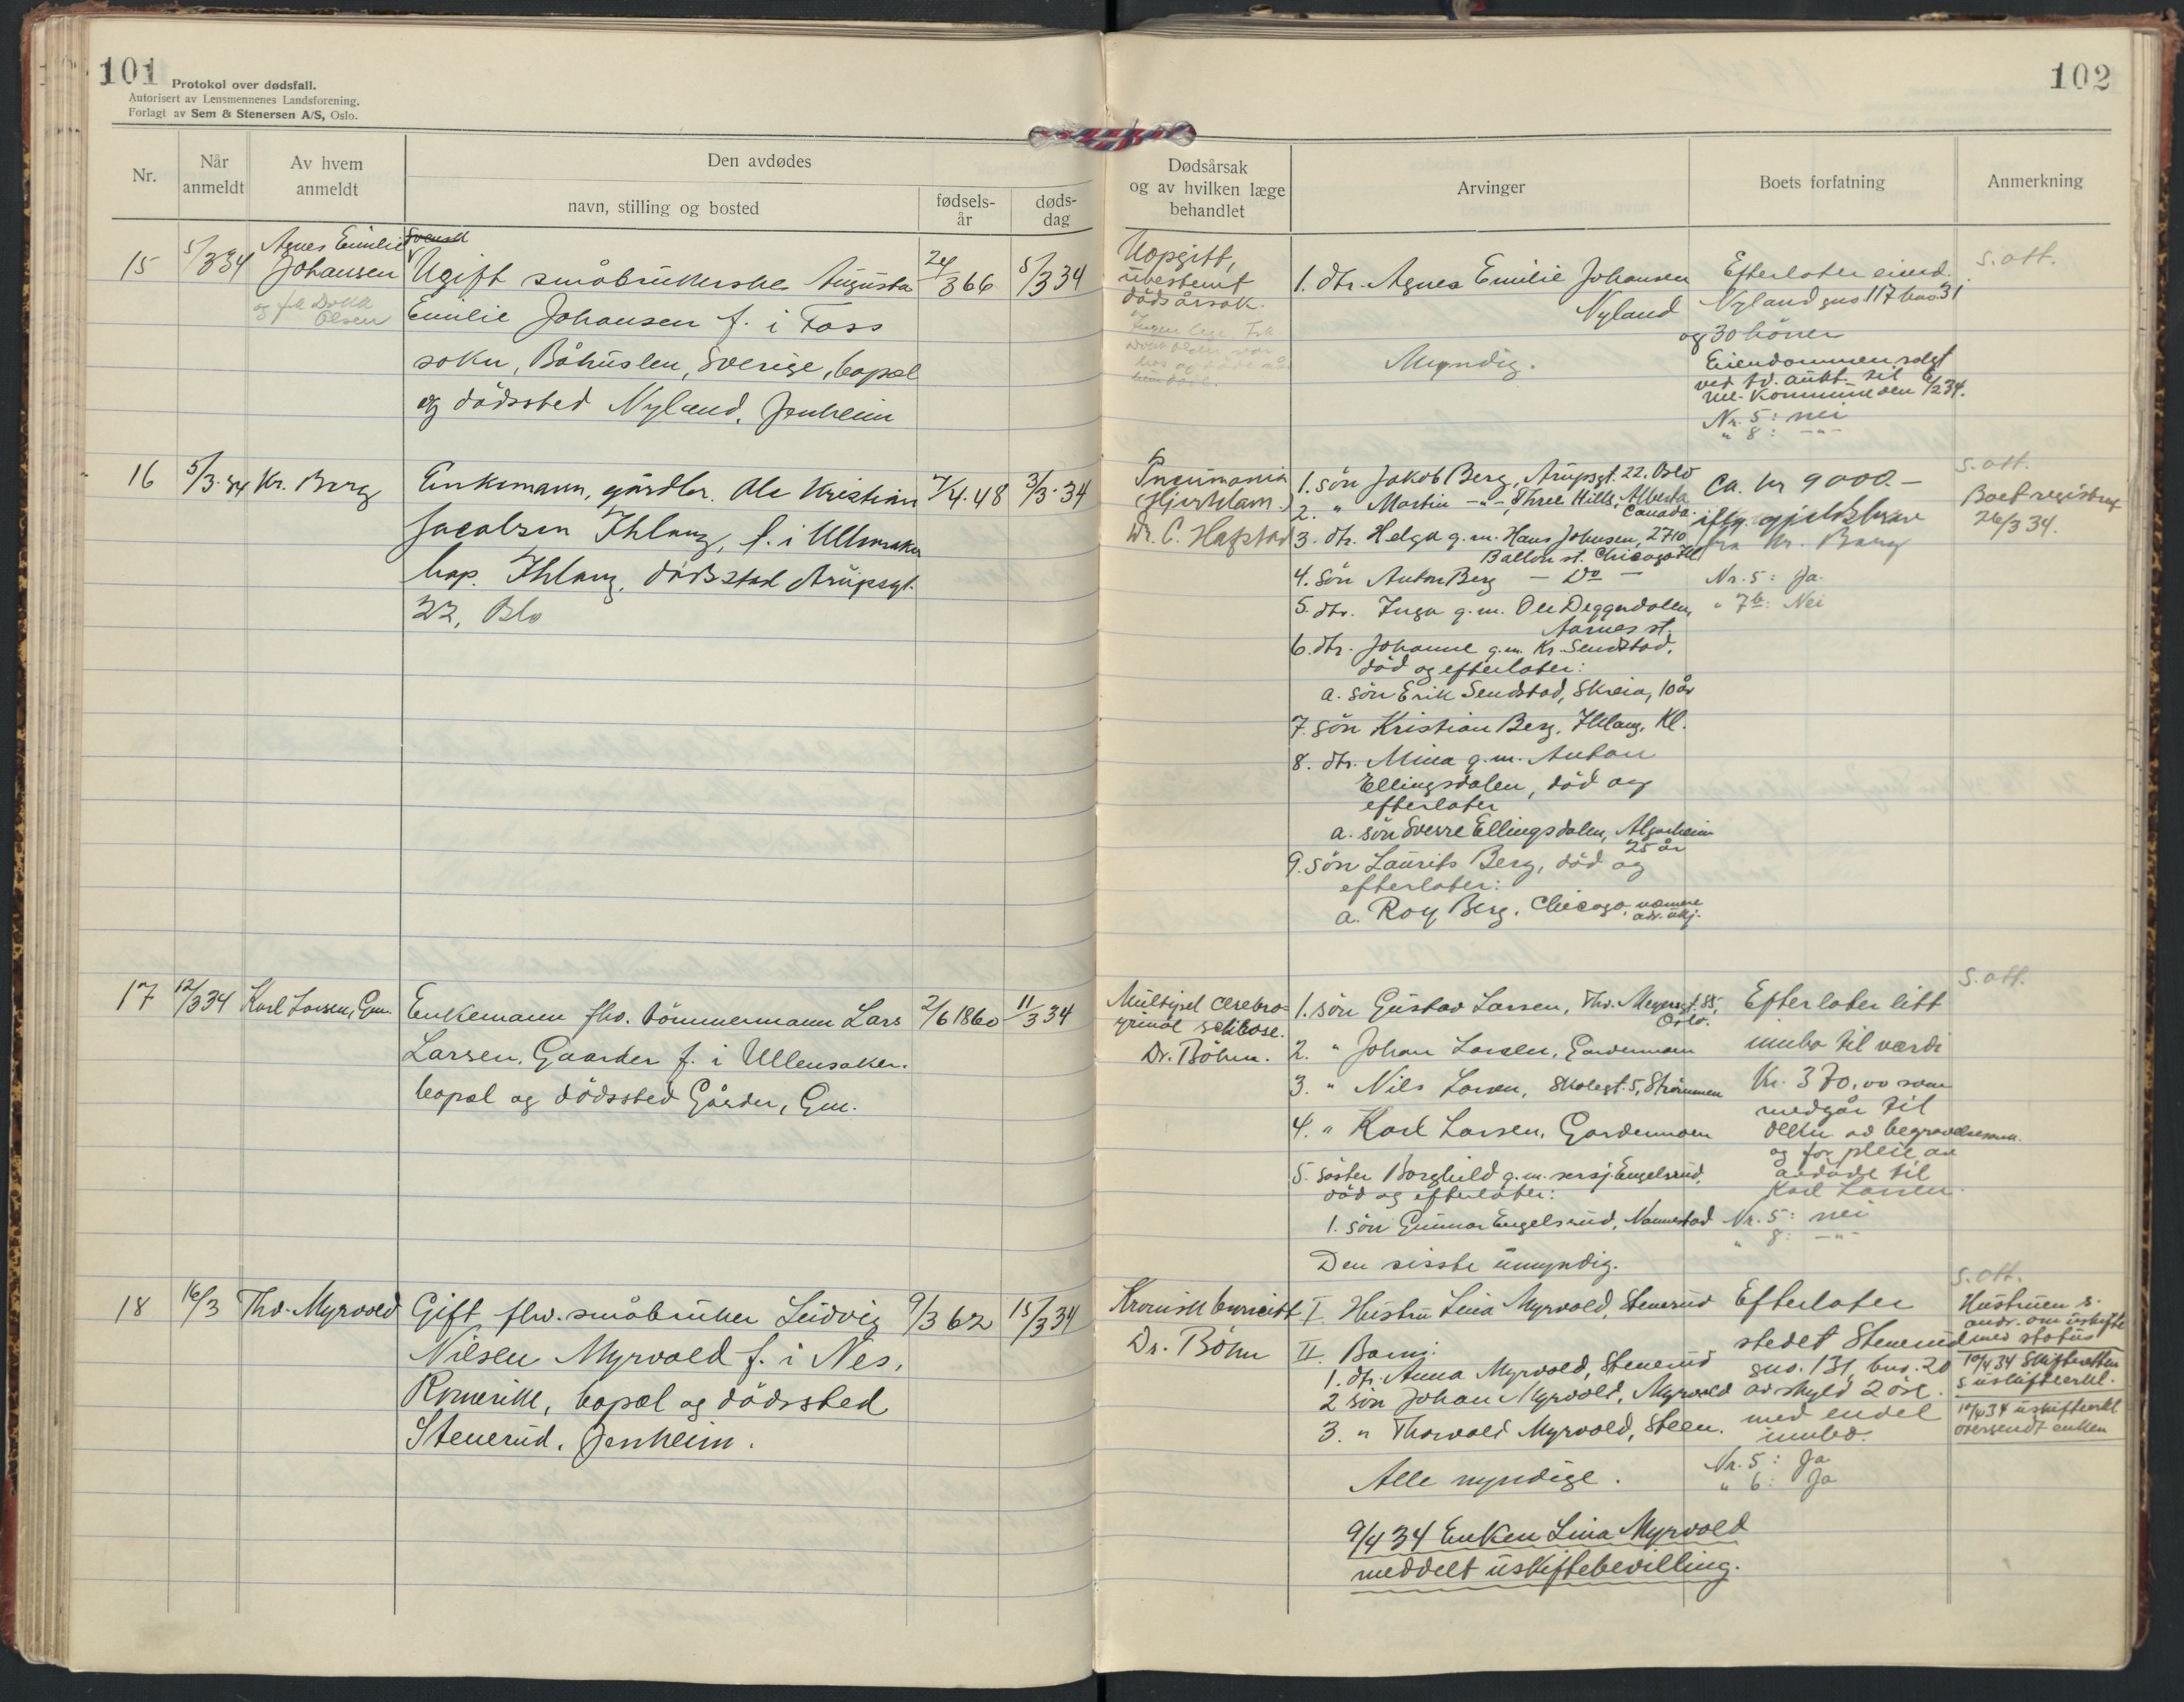 101
Protokol over dødsfall.
Autorisert av Lensmennenes Landsforening.
Forlagt av Sem & Stenersen A/S, Oslo.
Nr.
Når anmeldt
Av hvem anmeldt
Den avdødes
navn, stilling og bosted
fødsels-år
døds-dag
15
5/3 34
Agnes Emilie
Johansen
og frk
Olsen
Svensk
Ugift småbrukerske Augusta
Emilie Johansen f. i Foss
sokn, Båhuslen, Sverige, bopæl
og dödssted Nyland, Jenheim
24/3 66
5/3 34
16
5/3.34
Kr. Berg
Enkemann, gårdbr. Ole Kristian
Jacobsen Ihlang, f. i Ullensaker
bop. Ihlang, dödsstad Arupsgt.
22, Oslo
7/4.48
3/3.34
17
12/3 34
Karl Larsen, Gm.
Enkemann fhv. tömmermann Lars
Larsen, Gaarder f. i Ullensaker.
bopæl og dödssted Gårder, Gm.
2/6 1860
11/3 34
18
16/3
Thv. Myrvold
Gift fhv. småbruker Ludvig
Nilsen Myrvold f. i Nes,
Romerike, bopæl og dödssted
Stenerud, Jenheim.
9/3 62
15/3 34
102
Dødsårsak
og av hvilken læge
behandlet
Arvinger
Boets forfatning
Anmerkning
Uopgitt,
ubestemt
dödsårsak.
Ingen lege. Frk.
1. dtr. Agnes Emilie Johansen
Nyland
Myndig.
Efterlater eiend.
Nyland gno 117 bno 31
og 30 höner
Eiendommen solgt
ved tv. aukt. til
Ull. Kommune den 6/2 34.
Nr. 5: nei
" 8: -"-
S. att.
Pneumonia
(Hjertelam.)
Dr. C. Hafstad
1. sön Jakob Berg, Arupsgt. 22. Oslo
2. " Martin -"-, Three Hills, Alberta
Canada.
3. dtr. Helga g.m. Hans Johnsen, 2710
st. Chicago Ill
4. sön Anton Berg - Do -
5. dtr. Inga g.m. Ole Deggerdalen,
Aarnes st.
6. dtr. Johanne g.m. Kr. Sendstad,
död og efterlater:
a. sön Erik Sendstad, Skreia, 10 år
7. sön Kristian Berg, Ihlang, Kl.
8. dtr. Mina g.m. Anton
Ellingsdalen, död og
efterlater
a. sön Sverre Ellingsdalen, Algarheim
25 år
9. sön Laurits Berg, död og
efterlater:
a. Roy Berg, Chicago, nærmere
adr. ukj.
Ca. kr 9000.-
iflg. gjeldsbrev
fra Kr. Berg
Nr. 5: Ja.
" 7b: Nei
S. att.
Boet registrert
26/3 34.
Multipel cerebro-
spinal sclerose.
Dr. Böhn.
1. sön Gustav Larsen, Thv. Meyersgt. 85,
Oslo.
2. " Johan Larsen, Gardermoen
3. " Nils Larsen, Skolegt. 5, Strömmen
4. " Karl Larsen, Gardermoen
5. söster Borghild g.m. sersj. Engelsrud,
död og efterlater:
1. sön Gunnar Engelsrud, Nannestad
Den sisste umyndig.
Efterlater litt
innbo til værdi
Kr. 370,00 som
medgår til
dekn. av begravelsesomk.
og for pleie av
avdöde til
Karl Larsen.
Nr. 5: nei
" 8: -"-
S. att.
Kronisk
Dr. Böhn
I. Hustru Lina Myrvold, Stenerud
II. Barn:
1. dtr. Anna Myrvold, Stenerud
2 sön Johan Myrvold, Myrvold
3. " Thorvald Myrvold, Steen.
Alle myndige.
9/4 34 Enken Lina Myrvold
meddelt uskiftebevilling.
Efterlater
stedet Stenerud
gno. 131, bno. 20
av skyld 2 öre.
med endel
innbo.
Nr. 5: Ja
" 6: Ja
S. att.
Hustruen s.
andr. om uskifte
med status
10/4 34 Skifteretten
s uskifteerkl.
10/4 34 uskifteerkl
oversendt enken